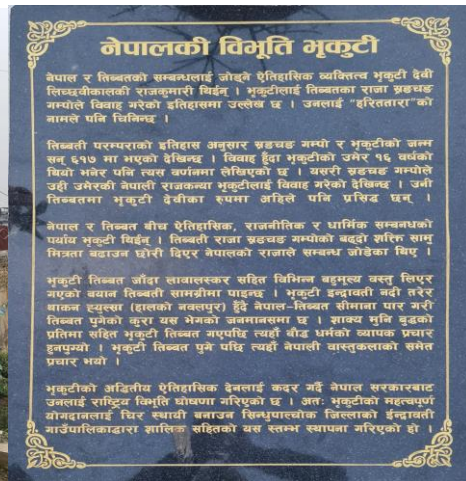 नेपालकी विभूति भृकुटी
नेपाल र तिब्बतको सम्बन्धलाई जोड्ने ऐतिहासिक व्यक्तित्व भृकुटी देवी
लिच्छवीकालकी राजकुमारी थिईन् । भृकुटीलाई तिब्बतका राजा स्रङचङ
गम्पोले विवाह गरेको इतिहासमा उल्लेख छ । उनलाई "हरिततारा"को
नामले पनि चिनिन्छ ।
तिब्बती परम्पराको इतिहास अनुसार स्रङचङ गम्पो र भृकुटीको जन्म
सन् ६१७ मा भएको देखिन्छ । विवाह हुँदा भृकुटीको उमेर १६ वर्षको
थियो भनेर पनि त्यस वर्णनमा लेखिएको छ । यसरी स्रङचङ गम्पोले
उही उमेरकी नेपाली राजकन्या भृकुटीलाई विवाह गरेको देखिन्छ । उनी
तिब्बतमा भृकुटी देवीका रुपमा अहिले पनि प्रसिद्ध छन् ।
नेपाल र तिब्बत बीच ऐतिहासिक, राजनीतिक र धार्मिक सम्बनधको
पर्याय भृकुटी थिईन् । तिब्बती राजा स्रङचङ गम्पोको बढ्दो शक्ति सामु
मित्रता बढाउन छोरी दिएर नेपालको राजाले सम्बन्ध जोडेका थिए ।
भृकुटी तिब्बत जाँदा लावालस्कर सहित विभिन्न बहुमूल्य वस्तु लिएर
गएको बयान तिब्बती सामग्रीमा पाइन्छ । भृकुटी इन्द्रावती नदी तरेर
थाकन ह्युल्सा (हालको नवलपुर) हुँदै नेपाल–तिब्बत सीमाना पार गरी
तिब्बत पुगेको कुरा यस भेगको जनमानसमा छ । शाक्य मुनि बुद्धको
प्रतिमा सहित भृकुटी तिब्बत गएपछि त्यहाँ बौद्ध धर्मको व्यापक प्रचार
हुनपुग्यो । भृकुटी तिब्बत पुगे पछि त्यहाँ नेपाली वास्तुकलाको समेत
प्रचार भयो ।
भृकुटीको अद्वितीय ऐतिहासिक देनलाई कदर गर्दै नेपाल सरकारबाट
उनलाई राष्ट्रिय विभूति घोषणा गरिएको छ । अतः भृकुटीको महत्वपूर्ण
योगदानलाई चिर स्थायी बनाउन सिन्धुपाल्चोक जिल्लाको ईन्द्रावती
गाउँपालिकाद्वारा शालिक सहितको यस स्तम्भ स्थापना गरिएको हो ।